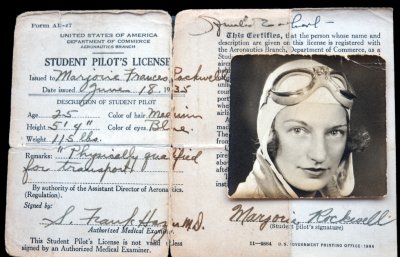 Form AE-47
UNITED STATES OF AMERICA
DEPARTMENT OF COMMERCE
AERONAUTICS BRANCH
STUDENT PILOT'S LICENSE
Issued to Marjorie Frances Rockwell
Date issued June 18, 1935
DESCRIPTION OF STUDENT PILOT
Age 25 Color of hair Medium
Height 5' 4" Color of eyes Blue
Weight 115 lbs.
Remarks: "Physically qualified
for transport
By authority of the Assistant Director of Aeronautics
(Regulation).
Signed by:
S. Frank M.D.
Authorized Medical Examiner.
This Student Pilot's License is not valid unless
signed by an Authorized Medical Examiner.
This Certifies, that the person whose name and
description are given on this license is registered with
the Aeronautics Branch, Department of Commerce, as
Marjorie Rockwell
(Student pilot's signature)
U.S. GOVERNMENT PRINTING OFFICE: 1934